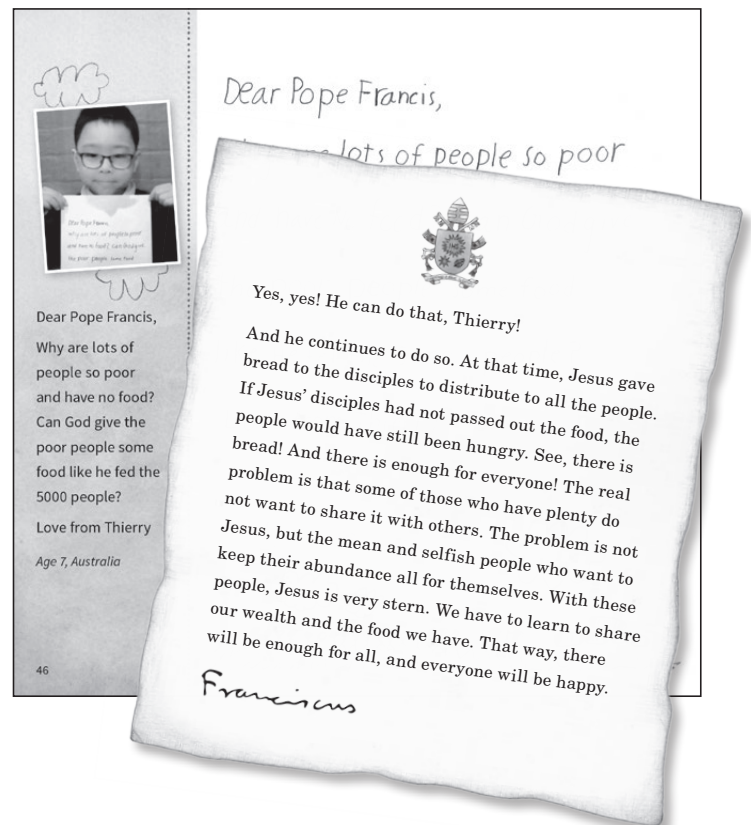 Dear Pope Francis,
Why are lots of
people so poor
and have no food?
Can God give the
poor people some
food like he fed the
5000 people?
Love from Thierry
Age 7, Australia
46
Dear Pope Francis,
lots of people so poor
Yes, yes! He can do that, Thierry!
And he continues to do so. At that time, Jesus gave
bread to the disciples to distribute to all the people.
If Jesus’ disciples had not passed out the food, the
people would have still been hungry. See, there is
bread! And there is enough for everyone! The real
problem is that some of those who have plenty do
not want to share it with others. The problem is not
Jesus, but the mean and selfish people who want to
keep their abundance all for themselves. With these
people, Jesus is very stern. We have to learn to share
our wealth and the food we have. That way, there
will be enough for all, and everyone will be happy.
Franciscus